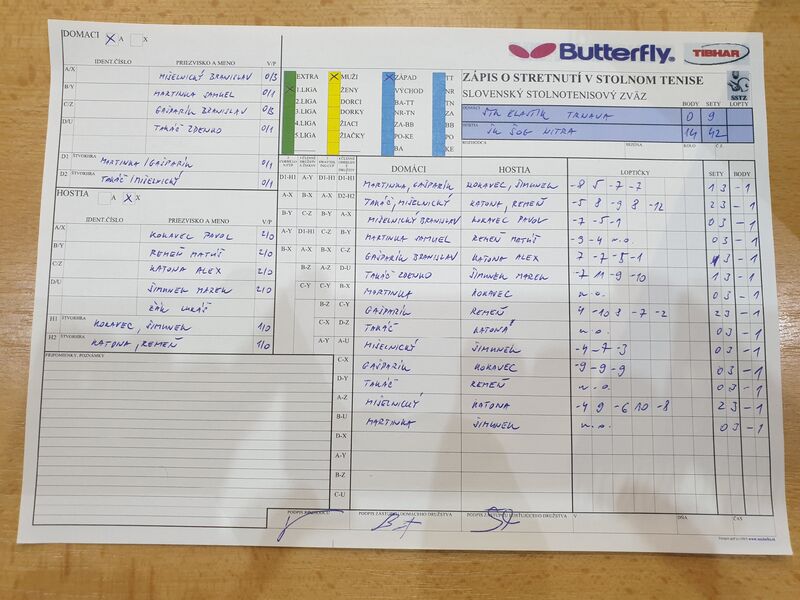 DOMACI X A X
Butterfly. TIBHAR
IDENT.ČÍSLO PRIEZVISKO A MENO V/P
A/X MIŠELNICKÝ BRANISLAV 0/3
B/Y MARTINKA SAMUEL 0/1
C/Z GAŠPARÍK BRANISLAV 0/3
D/U TAKÁČ ZDENKO 0/1
D1 ŠTVORHRA MARTINKA/GAŠPARÍK 0/1
D2 ŠTVORHRA TAKÁČ/MIŠELNICKÝ 0/1
HOSTIA A X X
IDENT.ČÍSLO PRIEZVISKO A MENO V/P
A/X KOKAVEC PAVOL 2/0
B/Y REMEŇ MATÚŠ 2/0
C/Z KATONA ALEX 2/0
D/U ŠIMUNEK MAREK 2/0
ŽÁK LUKÁČ
H1 ŠTVORHRA KOKAVEC, ŠIMUNEK 1/0
H2 ŠTVORHRA KATONA, REMEŇ 1/0
PRIPOMIENKY, POZNÁMKY
EXTRA X MUŽI X ZÁPAD TT
X 1.LIGA ŽENY VÝCHOD NR
2.LIGA DORCI BA-TT TN
3.LIGA DORKY NR-TN ZA
4.LIGA ŽIACI ZA-BB BB
5.LIGA ŽIAČKY PO-KE PO
BA KE
ZÁPIS O STRETNUTÍ V STOLNOM TENISE
SLOVENSKÝ STOLNOTENISOVÝ ZVÄZ
SSTZ
BODY SETY LOPTY
DOMÁCI STK ELASTIK TRNAVA 0 9
HOSTIA SK ŠOG NITRA 14 42
ROZHODCA SEZÓNA KOLO Č.S.
DOMÁCI HOSTIA LOPTIČKY SETY BODY
D1-H1 A-Y D1-H1 D1-H1 MARTINKA, GAŠPARÍK KOKAVEC, ŠIMUNEK -8 5 -7 -7 1 3 - 1
A-X B-X A-X D2-H2 TAKÁČ, MIŠELNICKÝ KATONA, REMEŇ -5 8 -9 8 -12 2 3 - 1
B-Y C-Z B-Y A-X MIŠELNICKÝ BRANISLAV KOKAVEC PAVOL -7 -5 -1 0 3 - 1
A-Y D1-H1 C-Z B-Y MARTINKA SAMUEL REMEŇ MATÚŠ -9 -4 n.o. 0 3 - 1
B-X A-X B-X C-Z GAŠPARÍK BRANISLAV KATONA ALEX 7 -7 -5 -1 1 3 - 1
B-Z A-Z D-U TAKÁČ ZDENKO ŠIMUNEK MAREK -7 11 -9 -10 1 3 - 1
C-Y C-Y B-X MARTINKA KOKAVEC n.o. 0 3 - 1
B-Z C-Y GAŠPARÍK REMEŇ 4 -10 3 -7 -2 2 3 - 1
C-X D-Z TAKÁČ KATONA n.o. 0 3 - 1
A-Y A-U MIŠELNICKÝ ŠIMUNEK -4 -7 -3 0 3 - 1
C-X GAŠPARÍK KOKAVEC -9 -9 -9 0 3 - 1
D-Y TAKÁČ REMEŇ n.o. 0 3 - 1
A-Z MIŠELNICKÝ KATONA -4 9 -6 10 -8 2 3 - 1
B-U MARTINKA ŠIMUNEK n.o. 0 3 - 1
D-X
A-Y
B-Z
C-U
PODPIS ROZHODCU PODPIS ZÁSTUPCU DOMÁCEHO DRUŽSTVA PODPIS ZÁSTUPCU HOSŤUJÚCEHO DRUŽSTVA V DŇA ČAS